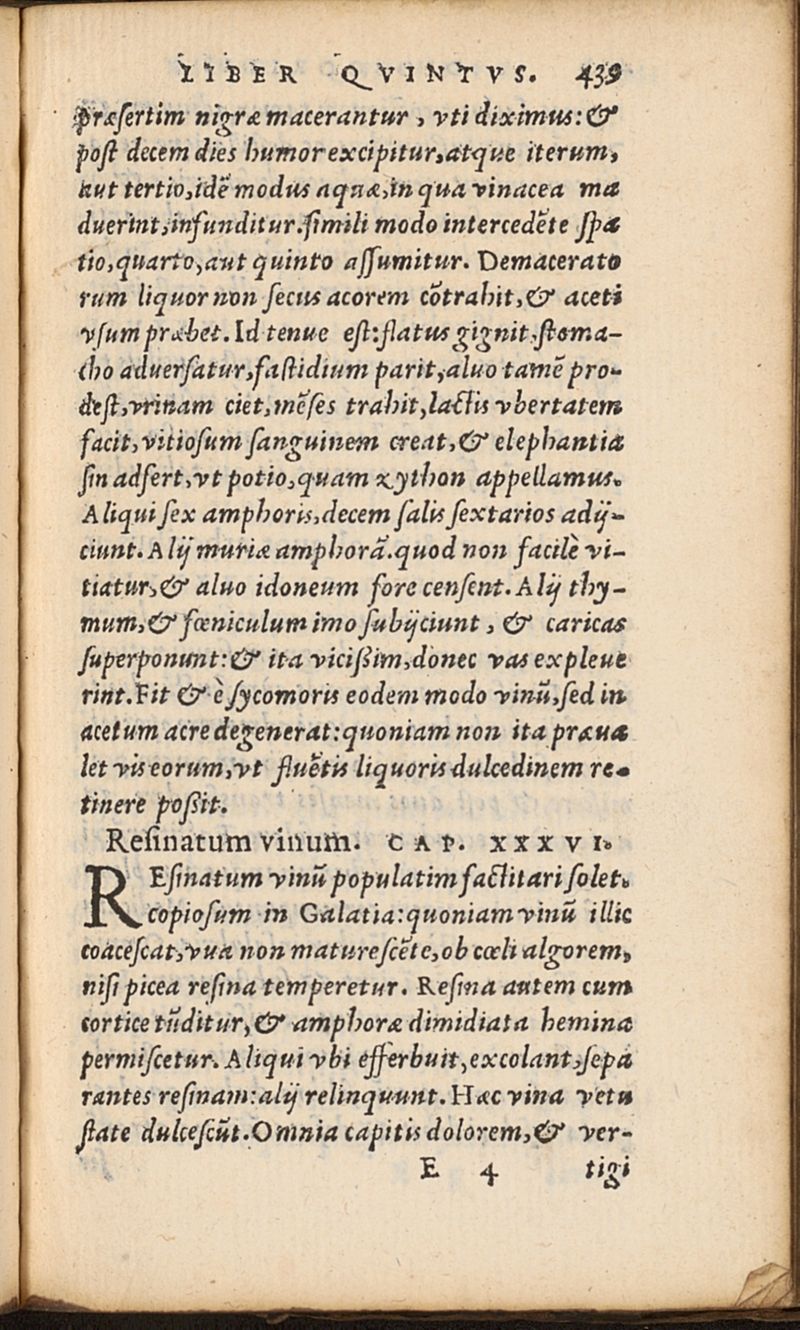 LIBER QVINTVS. 439
præſertim nigræ macerantur, vti diximus: &
poſt decem dies humor excipitur, atque iterum,
aut tertio, idē modus aquæ, in qua vinacea ma
duerint, infunditur. ſimili modo intercedēte ſpa
tio, quarto, aut quinto aſſumitur. Demacerato
rum liquor non ſecus acorem cōtrahit, & aceti
vſum præbet. Id tenue eſt: flatus gignit, ſtoma-
cho aduerſatur, faſtidium parit, aluo tamē pro-
deſt, vrinam ciet, mēſes trahit, lactis vbertatem
facit, vitioſum ſanguinem creat, & elephantia
ſin adfert, vt potio, quam zython appellamus.
Aliqui ſex amphoris, decem ſalis ſextarios adij-
ciunt. Alij muriæ amphorā. quod non facilè vi-
tiatur, & aluo idoneum fore cenſent. Alij thy-
mum, & fœniculum imo ſubijciunt, & caricas
ſuperponunt: & ita viciſſim, donec vas expleue
rint. Fit & è ſycomoris eodem modo vinū, ſed in
acetum acre degenerat: quoniam non ita præua
let vis eorum, vt fluētis liquoris dulcedinem re-
tinere poſſit.
Reſinatum vinum. CAP. XXXVI.
REſinatum vinū populatim factitari ſolet.
copioſum in Galatia: quoniam vinū illic
coaceſcat, vua non matureſcēte, ob cœli algorem,
niſi picea reſina temperetur. Reſina autem cum
cortice tūditur, & amphoræ dimidiata hemina
permiſcetur. Aliqui vbi efferbuit, excolant, ſepa
rantes reſinam: alij relinquunt. Hæc vina vetu
ſtate dulceſcūt. Omnia capitis dolorem, & ver-
E 4 tigi